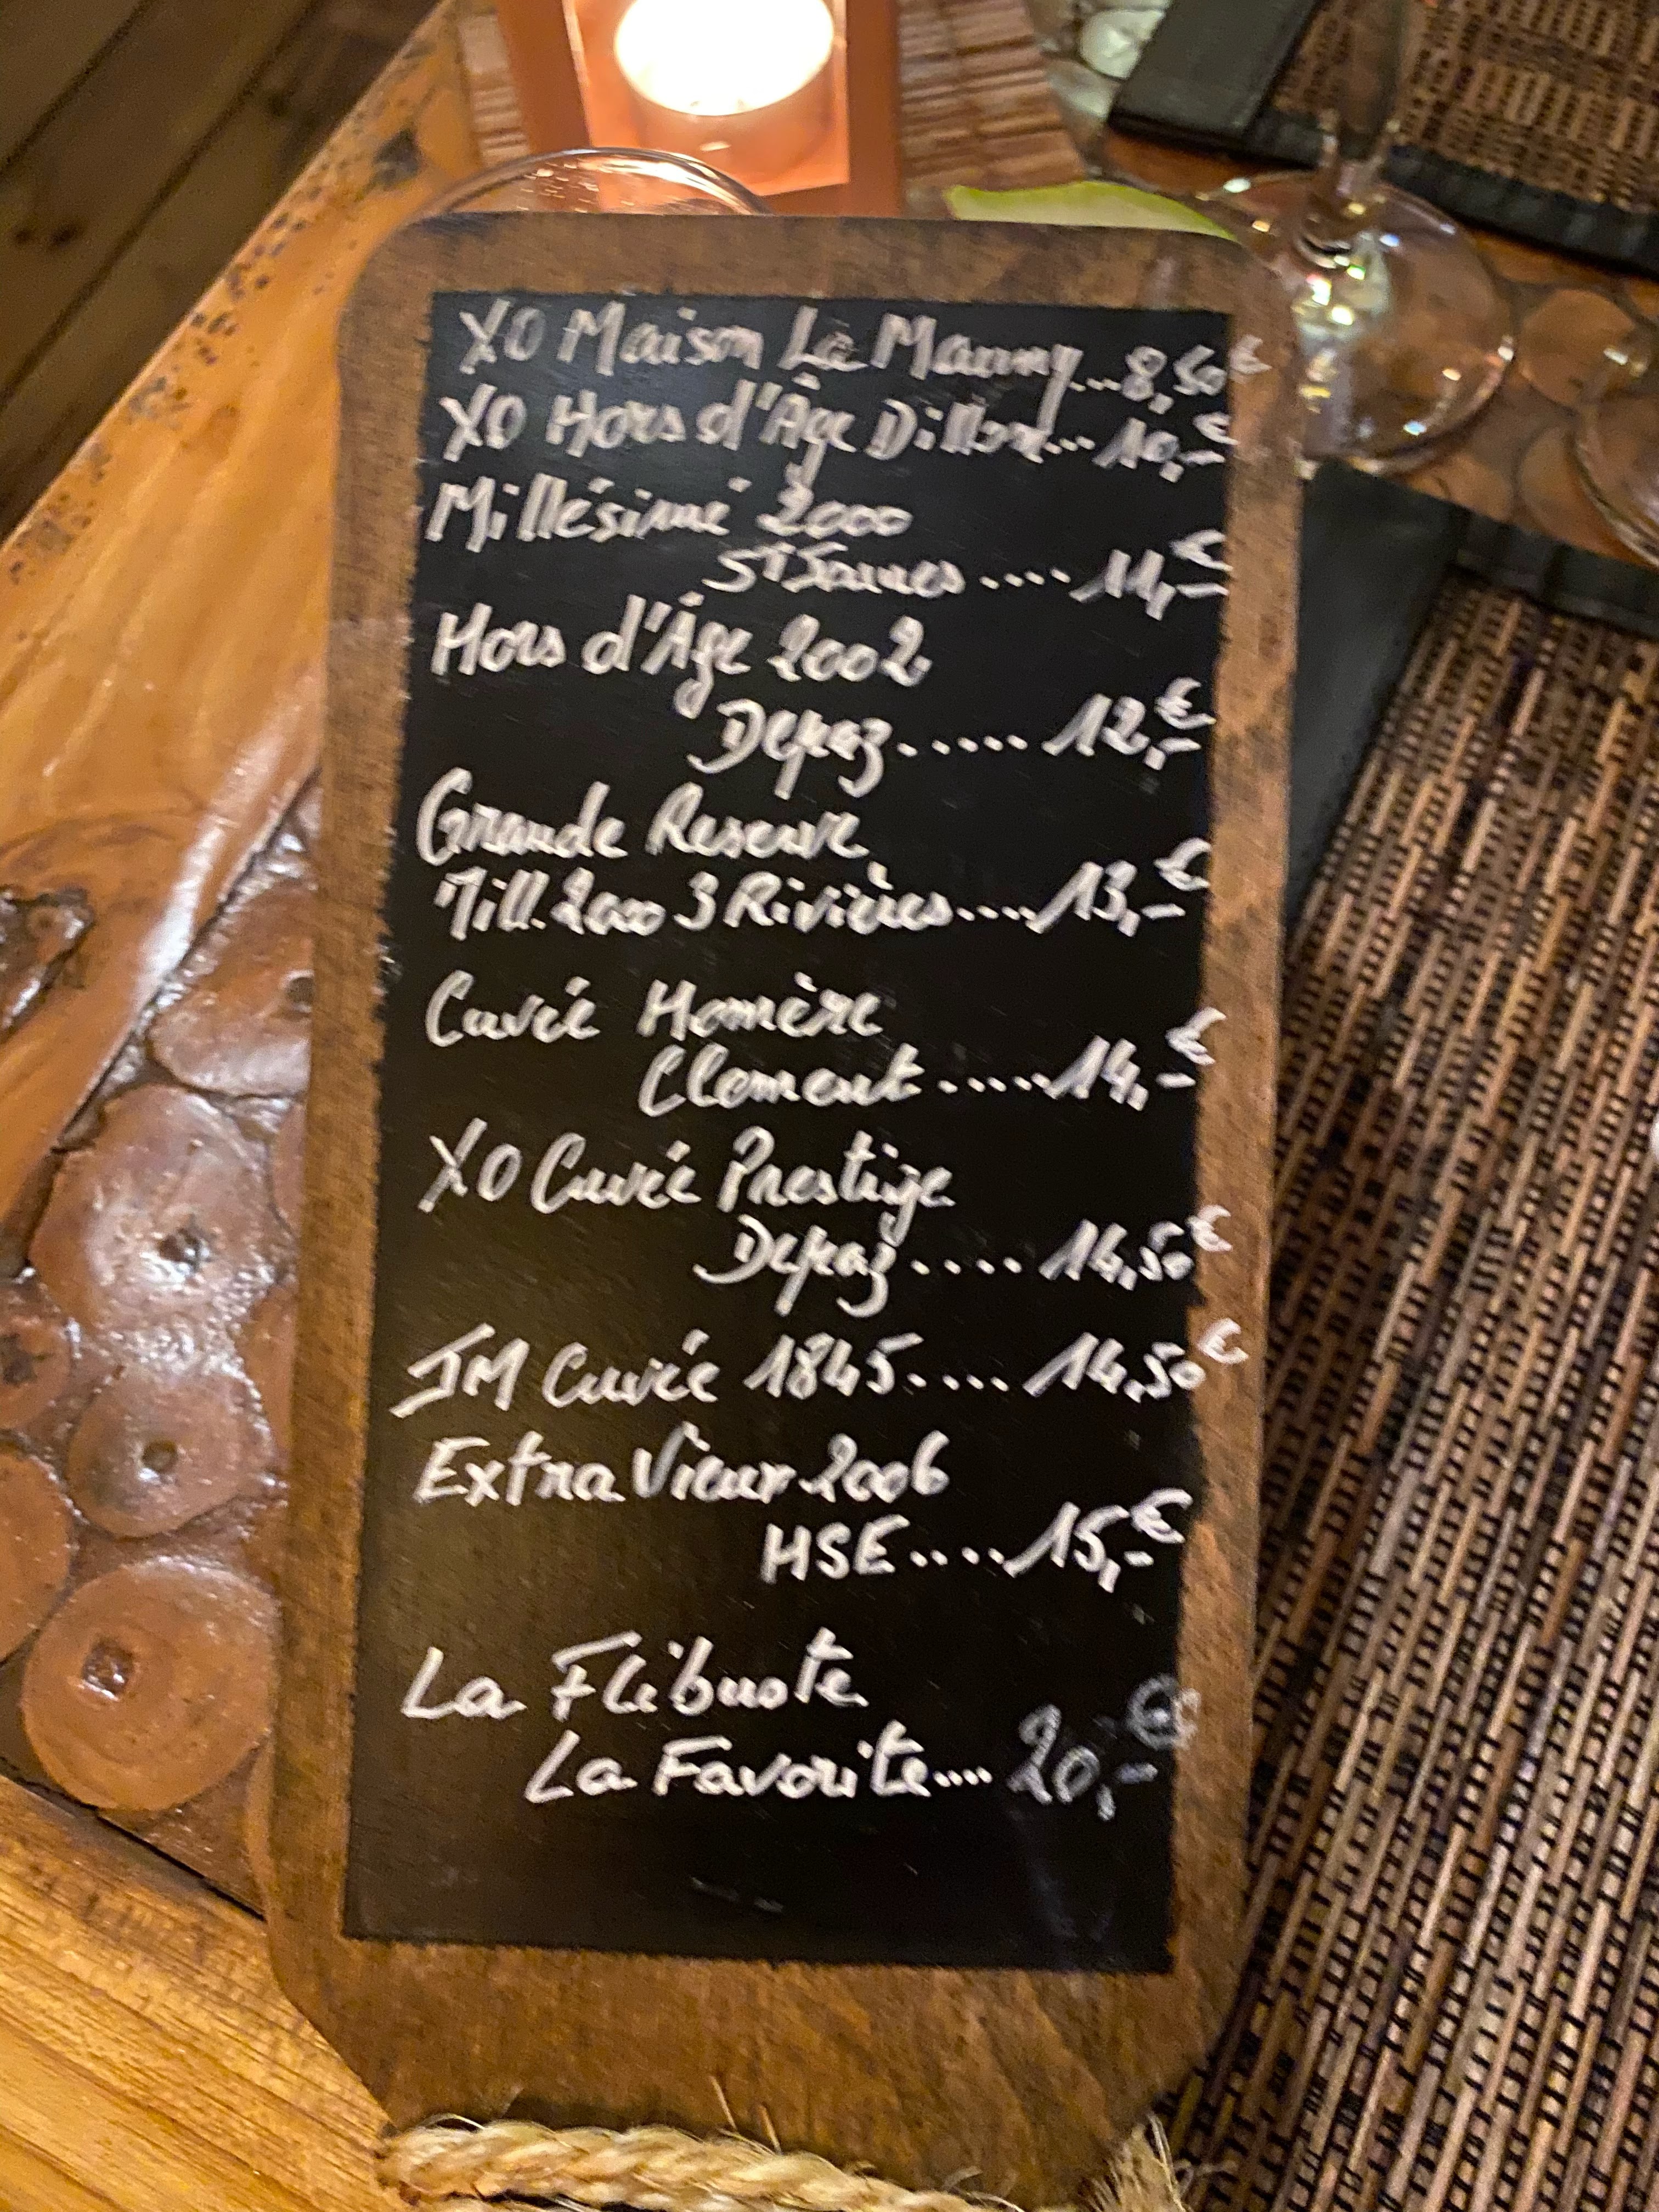 XO Maison La Mauny...8,50€
XO Hors d'Âge Dillon...10,-€
Millésimé 2000
St James....11,-€
Hors d'Âge 2002
Depaz.....12,-€
Grande Reserve
Mill. 2000 3 Rivières....13,-€
Cuvée Homère
Clement.....14,-€
XO Cuvée Prestige
Depaz....14,50€
JM Cuvée 1845....14,50€
Extra Vieux 2006
HSE....15,-€
La Flibuste
La Favorite....20,-€